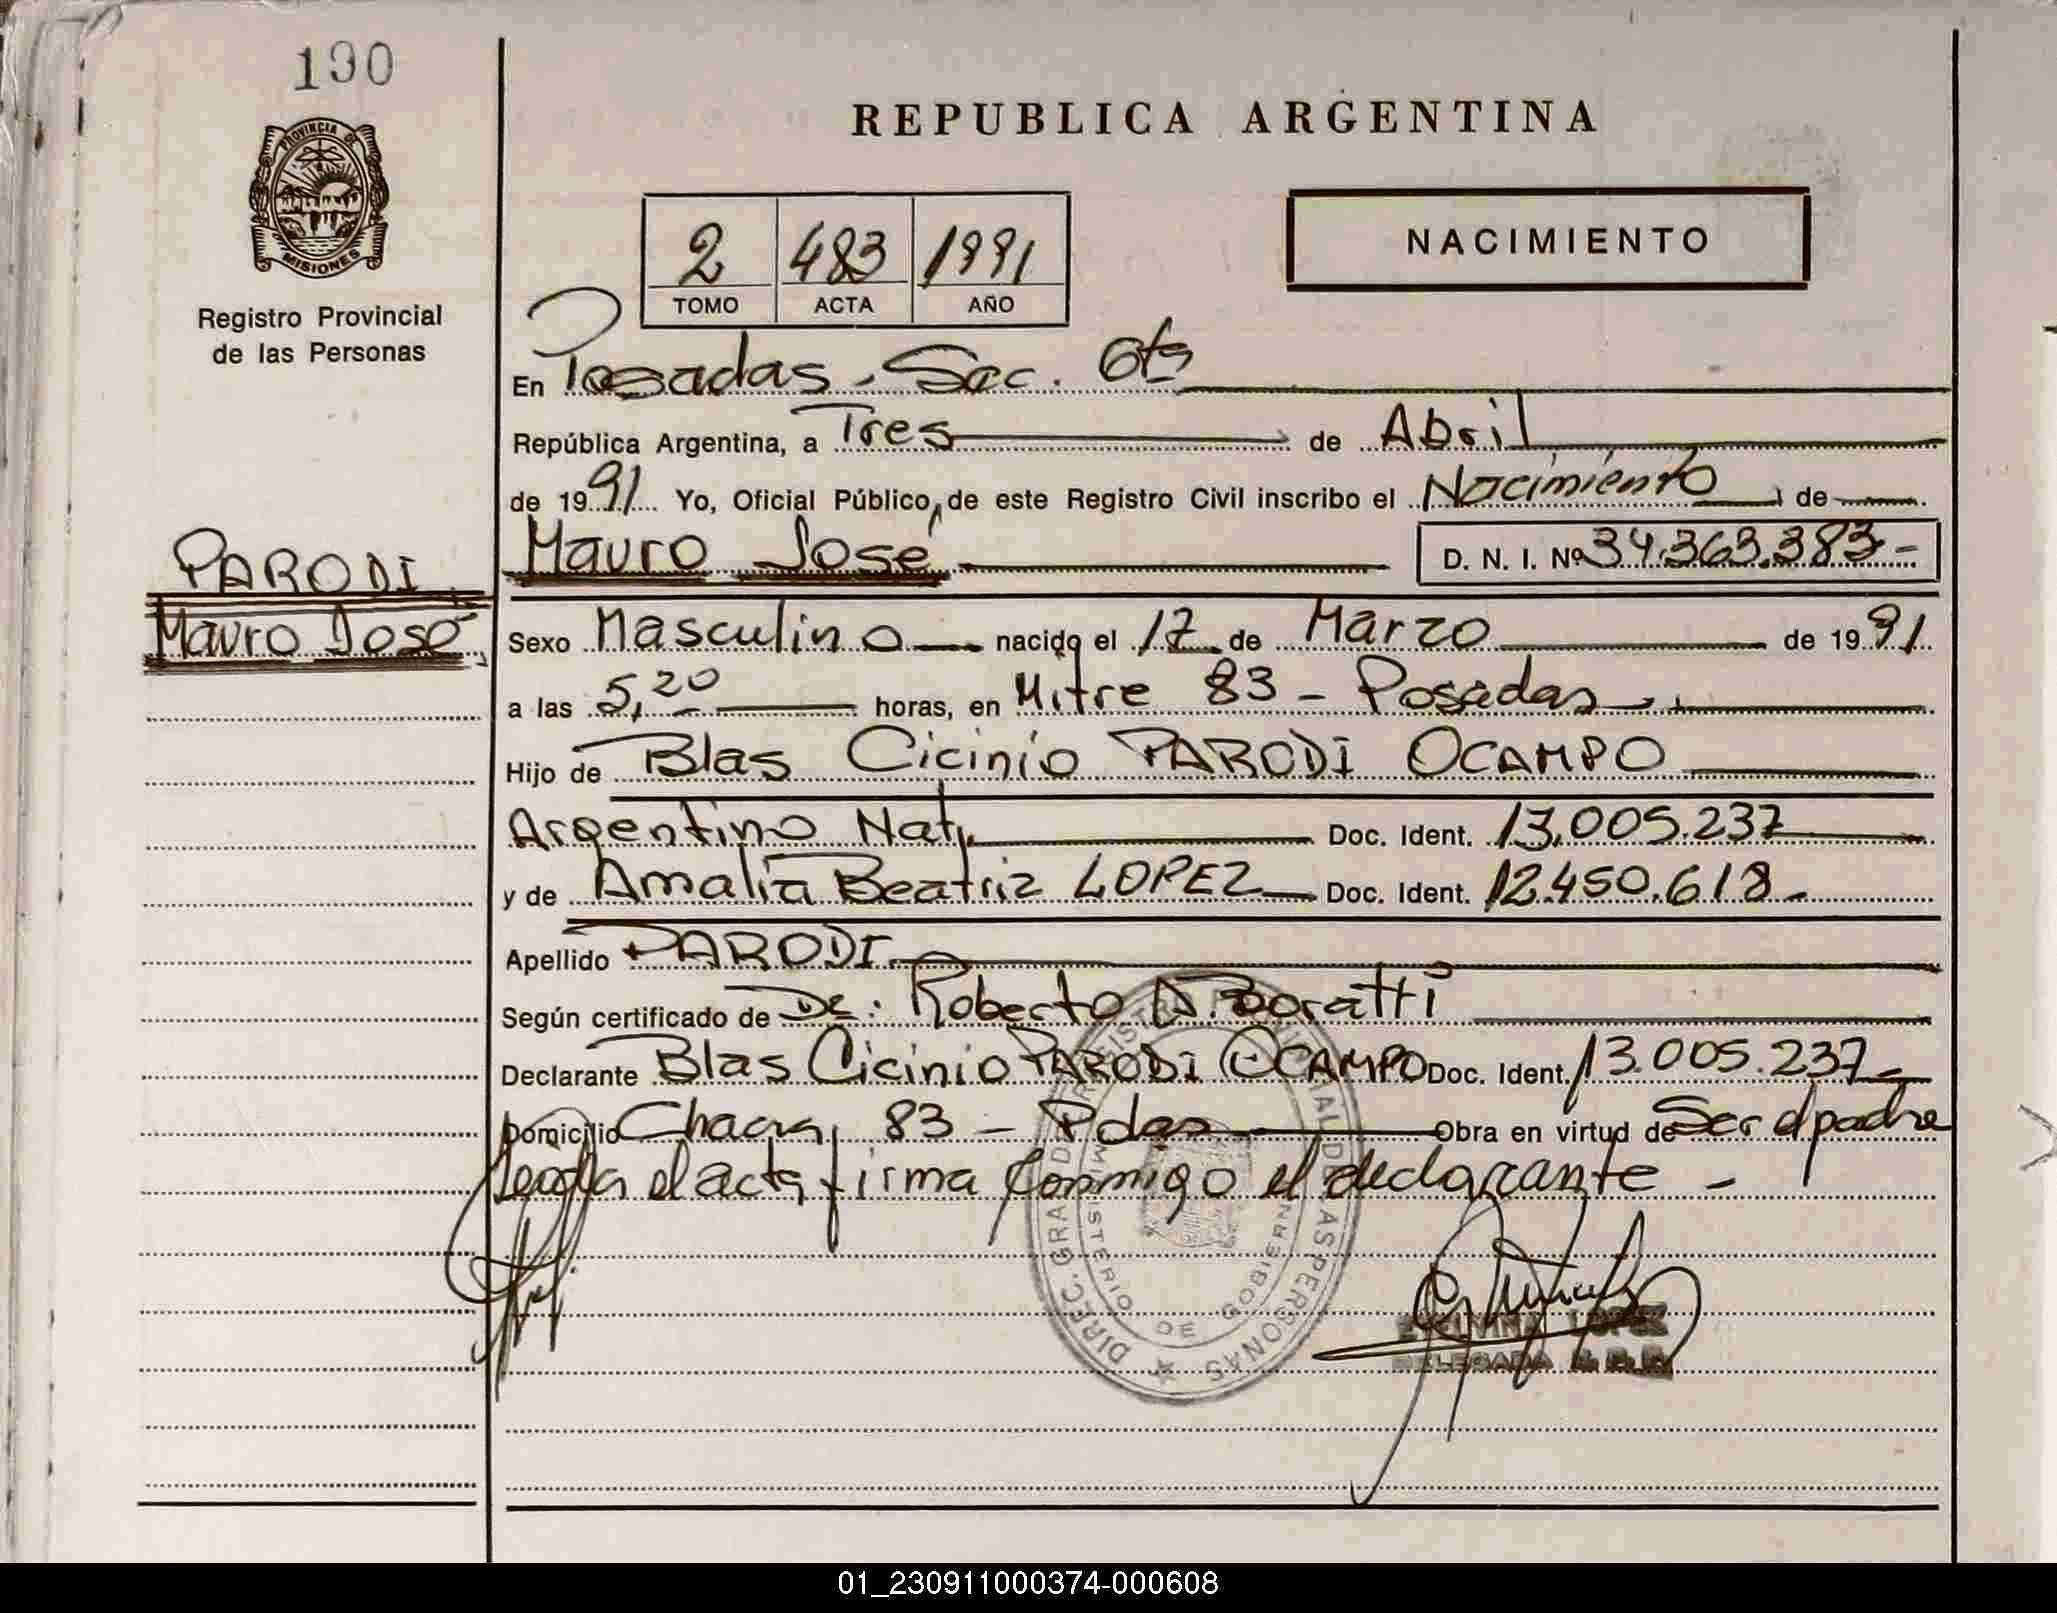 190
PROVINCIA DE
MISIONES
Registro Provincial
de las Personas
REPUBLICA ARGENTINA
NACIMIENTO
2 483 1991
TOMO ACTA AÑO
En Posadas - Sec. 6ta
República Argentina, a Tres de Abril
de 1991 Yo, Oficial Público, de este Registro Civil inscribo el Nacimiento de
Mauro José D. N. I. Nº 34.363.383-
PARODI
Mauro José
Sexo Masculino nacido el 17 de Marzo de 1991
a las 5,20 horas, en Mitre 83 - Posadas
Hijo de Blas Cicinio PARODI OCAMPO
Argentino Nat. Doc. Ident. 13.005.237
y de Amalia Beatriz LOPEZ Doc. Ident. 12.450.618-
Apellido PARODI
Según certificado de Dr: Roberto A. Boratti
Declarante Blas Cicinio PARODI OCAMPO Doc. Ident. 13.005.237-
Domicilio Chacra 83 - Pdas Obra en virtud de Ser el padre
Leida el acta firma conmigo el declarante -
DIREC. GRAL DE REGISTRO PROVINCIAL DE LAS PERSONAS
MINISTERIO DE GOBIERNO
LOPEZ
DELEGADA R. P. P.
01_230911000374-000608